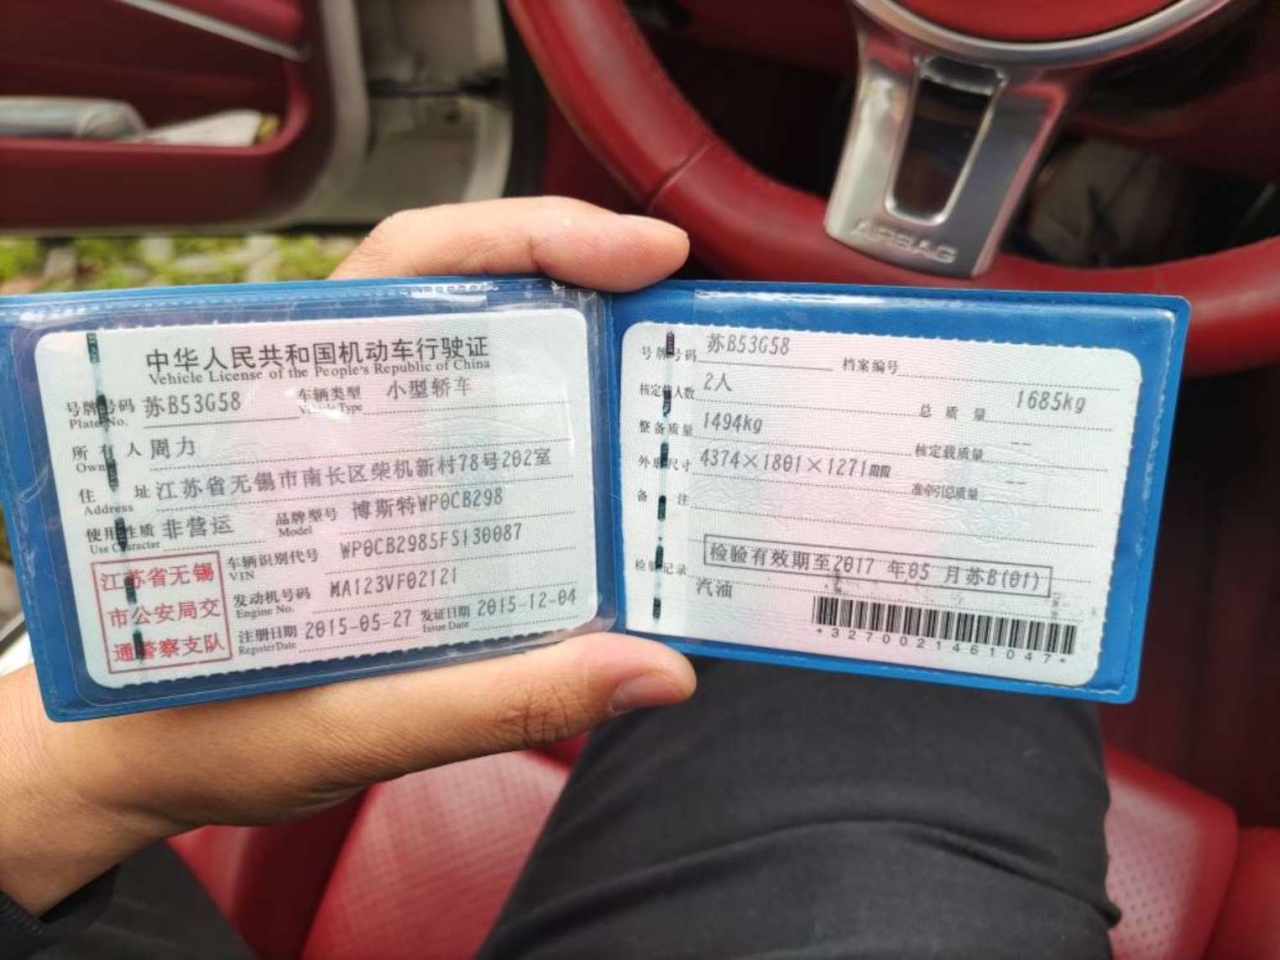 AIRBAG
中华人民共和国机动车行驶证
Vehicle License of the People's Republic of China
号牌号码 苏B53G58 车辆类型 小型轿车
Plate No. Vehicle Type
所有人 周力
Owner
住址 江苏省无锡市南长区柴机新村78号202室
Address
使用性质 非营运 品牌型号 博斯特WP0CB298
Use Character Model
江苏省无锡
市公安局交
通警察支队
车辆识别代号 WP0CB2985FS130087
VIN
发动机号码 MA123VF02121
Engine No.
注册日期 2015-05-27 发证日期 2015-12-04
Register Date Issue Date
号牌号码 苏B53G58 档案编号
核定载人数 2人 总质量 1685kg
整备质量 1494kg 核定载质量 --
外廓尺寸 4374×1801×1271mm 准牵引总质量 --
备注
检验有效期至2017年05月苏B(01)
检验记录
汽油
*3270021461047*